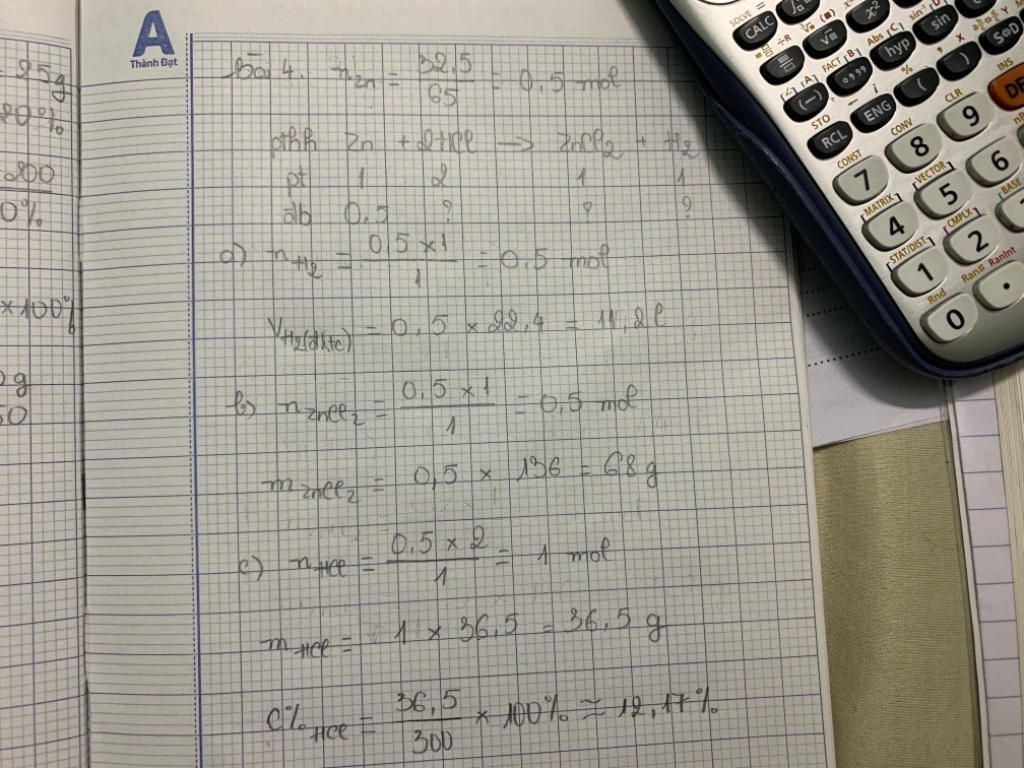 = 25g
20%
200
0%
×100%
g
50
A
Thành Đạt
Bài 4. n Zn = 32,5 / 65 = 0,5 mol
pthh Zn + 2HCl → ZnCl₂ + H₂
pt 1 2 1 1
db 0,5 ? ? ?
a) n H₂ = 0,5 × 1 / 1 = 0,5 mol
V H₂(đktc) = 0,5 × 22,4 = 11,2 l
b) n ZnCl₂ = 0,5 × 1 / 1 = 0,5 mol
m ZnCl₂ = 0,5 × 136 = 68 g
c) n HCl = 0,5 × 2 / 1 = 1 mol
m HCl = 1 × 36,5 = 36,5 g
C% HCl = 36,5 / 300 × 100% ≈ 12,17%
SOLVE =
CALC x²
÷R
√ Abs sin⁻¹
hyp sin S⇔D
FACT
(−) °,,, INS
STO ← i % , X
RCL ENG ( ) DE
CONST CONV CLR
7 8 9
MATRIX VECTOR
4 5 6
STAT/DIST CMPLX BASE
1 2
Rnd Ran# RanInt
0 .